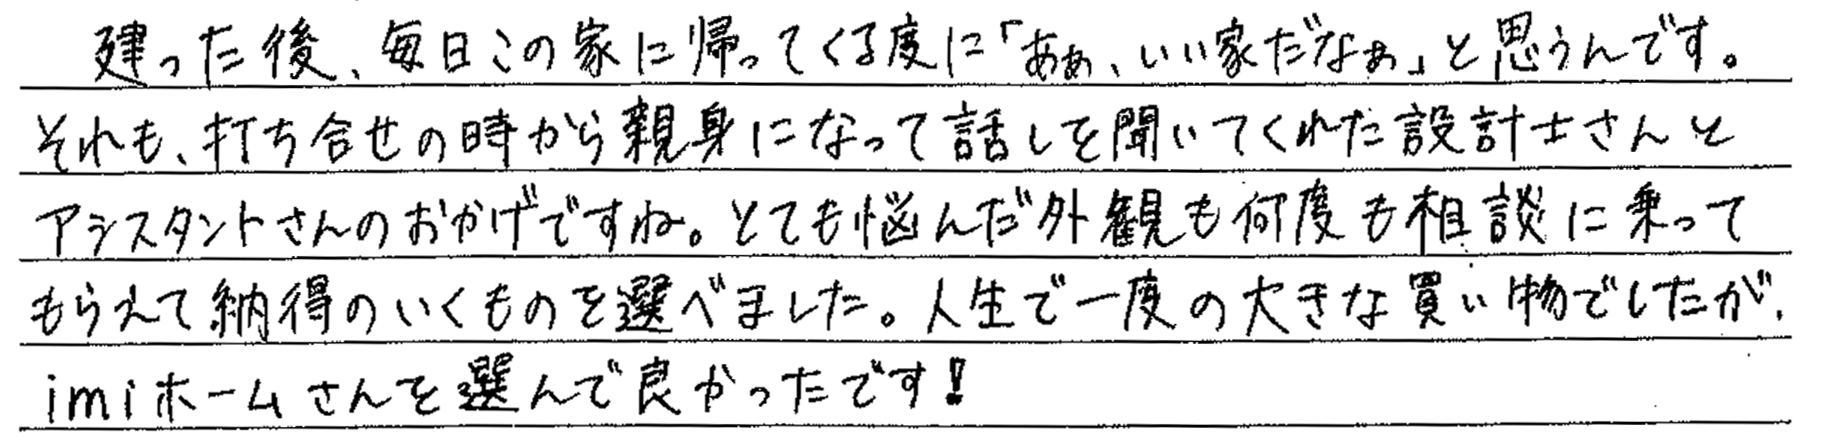 建った後、毎日この家に帰ってくる度に「あぁ、いい家だなぁ」と思うんです。
それも、打ち合せの時から親身になって話しを聞いてくれた設計士さんと
アシスタントさんのおかげですね。とても悩んだ外観も何度も相談に乗って
もらえて納得のいくものを選べました。人生で一度の大きな買い物でしたが、
imiホームさんを選んで良かったです!